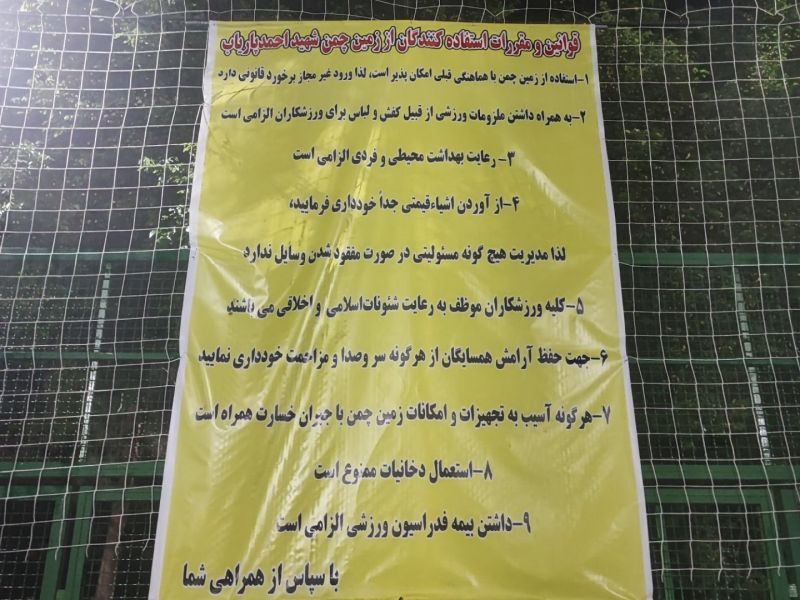 قوانین و مقررات استفاده کنندگان از زمین چمن شهید احمدپاریاب
۱-استفاده از زمین چمن با هماهنگی قبلی امکان پذیر است، لذا ورود غیر مجاز برخورد قانونی دارد
۲-به همراه داشتن ملزومات ورزشی از قبیل کفش و لباس برای ورزشکاران الزامی است
۳- رعایت بهداشت محیطی و فردی الزامی است
۴-از آوردن اشیاءقیمتی جداً خودداری فرمایید،
لذا مدیریت هیچ گونه مسئولیتی در صورت مفقود شدن وسایل ندارد
۵-کلیه ورزشکاران موظف به رعایت شئونات‌اسلامی و اخلاقی می باشند.
۶-جهت حفظ آرامش همسایگان از هرگونه سر وصدا و مزاحمت خودداری نمایید.
۷-هرگونه آسیب به تجهیزات و امکانات زمین چمن با جبران خسارت همراه است
۸-استعمال دخانیات ممنوع است
۹-داشتن بیمه فدراسیون ورزشی الزامی است
با سپاس از همراهی شما